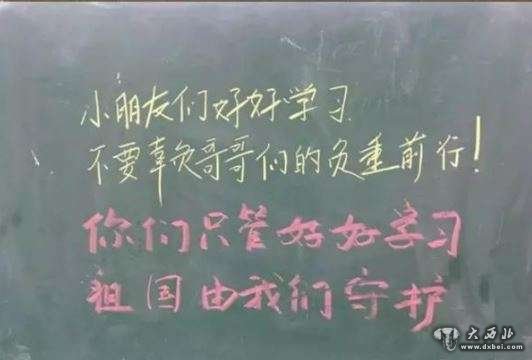 小朋友们好好学习
不要辜负哥哥们的负重前行!
你们只管好好学习
祖国由我们守护
大西北
www.dxbei.com